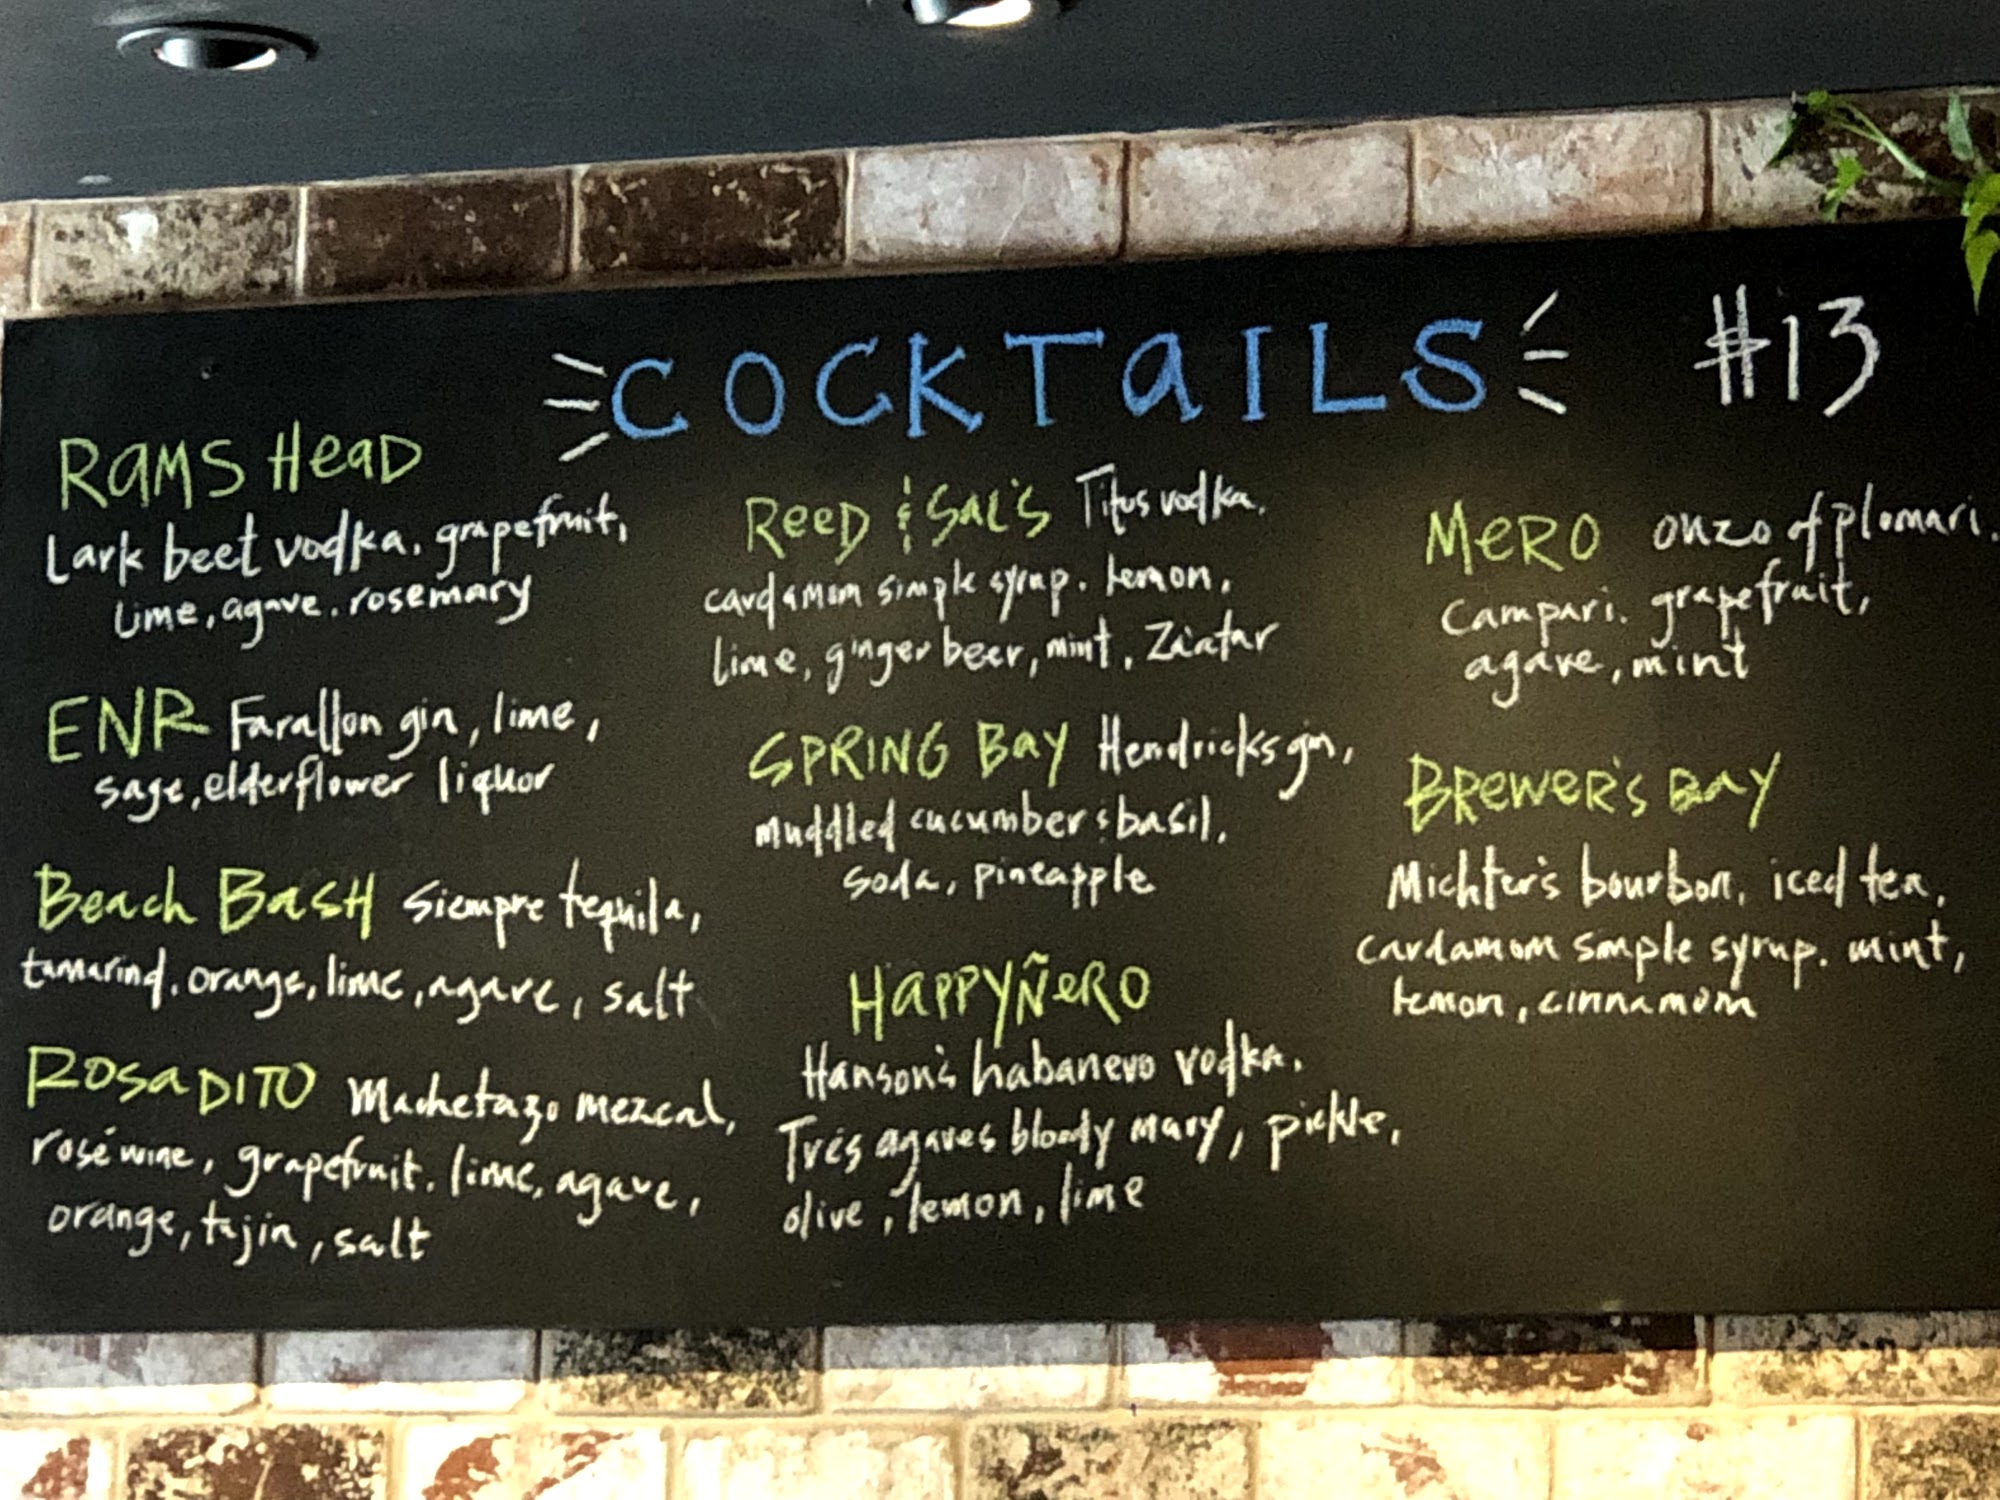 COCKTAILS #13
RAMS HEAD
Lark beet vodka, grapefruit,
lime, agave, rosemary
ENR Farallon gin, lime,
sage, elderflower liquor
Beach BaSH Siempre tequila,
tamarind, orange, lime, agave, salt
ROSADITO Machetazo mezcal,
rosé wine, grapefruit, lime, agave,
orange, tajin, salt
REED & SAL'S Titus vodka,
cardamom simple syrup, lemon,
lime, ginger beer, mint, Za'atar
SPRING BAY Hendricks gin,
muddled cucumber & basil,
soda, pineapple
HAPPYÑERO
Hanson's habanero vodka,
Trés agaves bloody mary, pickle,
olive, lemon, lime
MERO onzo of plomari,
Campari, grapefruit,
agave, mint
BREWER'S BAY
Michter's bourbon, iced tea,
cardamom smple syrup, mint,
lemon, cinnamom